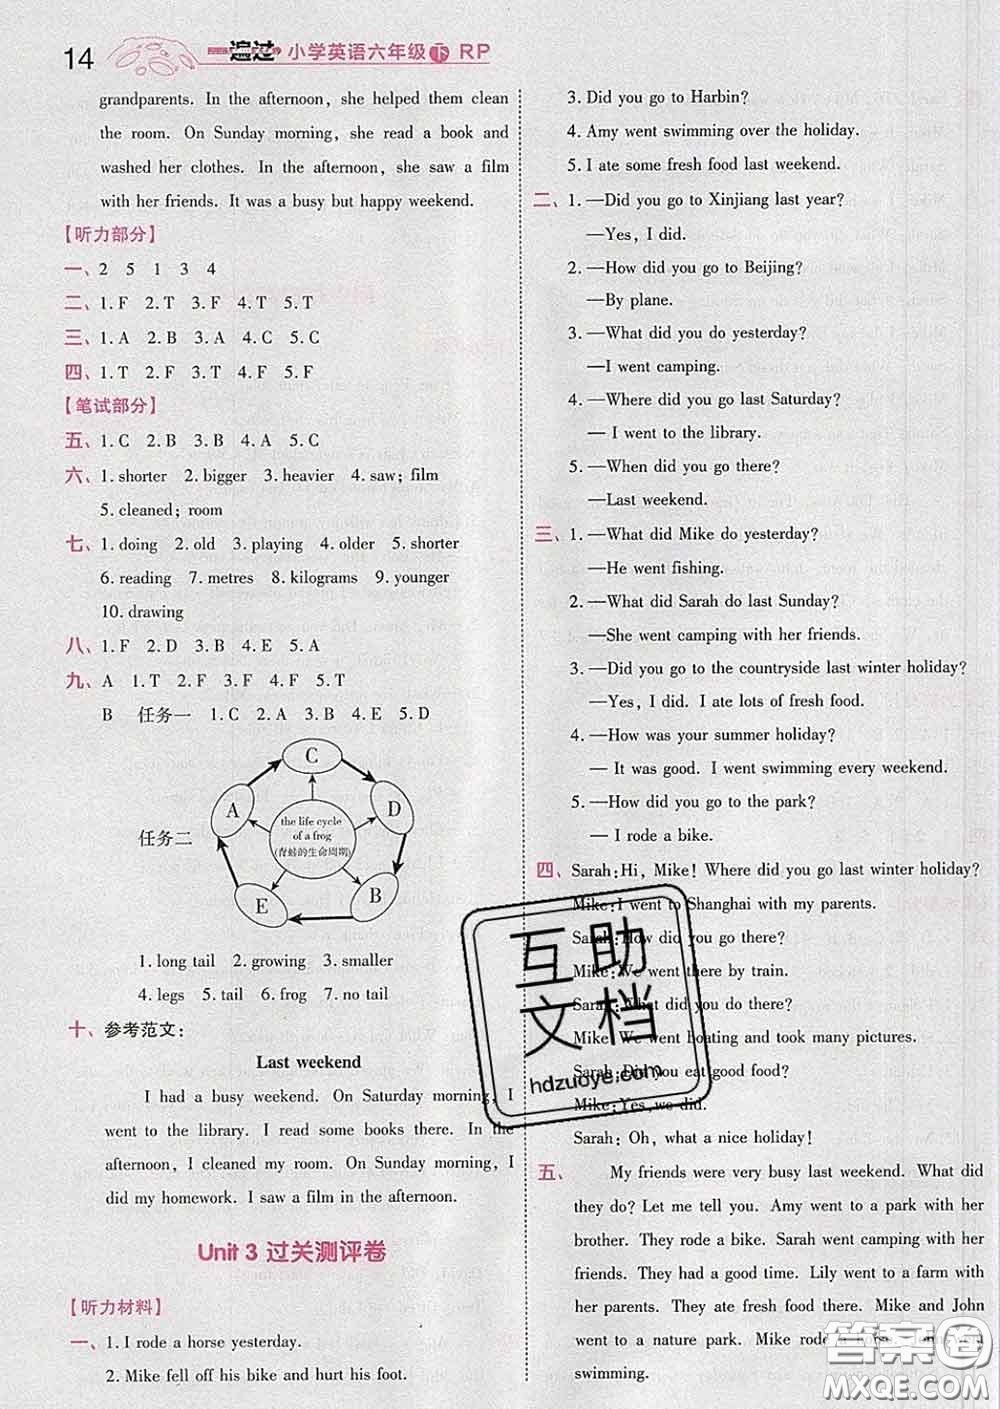 14
一遍过 小学英语六年级 下 RP
grandparents. In the afternoon, she helped them clean
the room. On Sunday morning, she read a book and
washed her clothes. In the afternoon, she saw a film
with her friends. It was a busy but happy weekend.
【听力部分】
一、2 5 1 3 4
二、1. F 2. T 3. F 4. T 5. T
三、1. A 2. B 3. A 4. C 5. C
四、1. T 2. F 3. T 4. F 5. F
【笔试部分】
五、1. C 2. B 3. B 4. A 5. C
六、1. shorter 2. bigger 3. heavier 4. saw; film
5. cleaned; room
七、1. doing 2. old 3. playing 4. older 5. shorter
6. reading 7. metres 8. kilograms 9. younger
10. drawing
八、1. F 2. D 3. B 4. E 5. A
九、A 1. T 2. F 3. F 4. F 5. T
B 任务一 1. C 2. A 3. B 4. E 5. D
任务二
C
A
D
the life cycle
of a frog
(青蛙的生命周期)
E
B
1. long tail 2. growing 3. smaller
4. legs 5. tail 6. frog 7. no tail
十、参考范文：
Last weekend
I had a busy weekend. On Saturday morning, I
went to the library. I read some books there. In the
afternoon, I cleaned my room. On Sunday morning, I
did my homework. I saw a film in the afternoon.
Unit 3 过关测评卷
【听力材料】
一、1. I rode a horse yesterday.
2. Mike fell off his bike and hurt his foot.
3. Did you go to Harbin?
4. Amy went swimming over the holiday.
5. I ate some fresh food last weekend.
二、1. —Did you go to Xinjiang last year?
—Yes, I did.
2. —How did you go to Beijing?
—By plane.
3. —What did you do yesterday?
—I went camping.
4. —Where did you go last Saturday?
— I went to the library.
5. —When did you go there?
—Last weekend.
三、1. —What did Mike do yesterday?
—He went fishing.
2. —What did Sarah do last Sunday?
—She went camping with her friends.
3. —Did you go to the countryside last winter holiday?
—Yes, I did. I ate lots of fresh food.
4. —How was your summer holiday?
— It was good. I went swimming every weekend.
5. —How did you go to the park?
— I rode a bike.
四、Sarah: Hi, Mike! Where did you go last winter holiday?
Mike: I went to Shanghai with my parents.
Sarah: How did you go there?
Mike: We went there by train.
Sarah: What did you do there?
Mike: We went boating and took many pictures.
Sarah: Did you eat good food?
Mike: Yes, we did.
Sarah: Oh, what a nice holiday!
五、My friends were very busy last weekend. What did
they do? Let me tell you. Amy went to a park with her
brother. They rode a bike. Sarah went camping with her
friends. They had a good time. Lily went to a farm with
her parents. They ate fresh food there. Mike and John
went to a nature park. Mike rode a horse. John went
swimming.
互助
文档
hdzuoye.com
答案圈
MXQE.COM